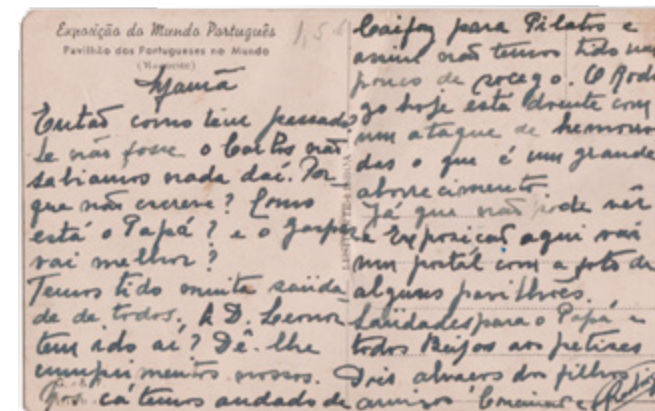 Exposição do Mundo Português
Pavilhão dos Portugueses no Mundo
(Maquette)
Mamã
Então como tem passado?
Se não fosse o Carlos não
sabiamos nada daí. Por
que não escreve? Como
está o Papá? e o Gaspar
vai melhor?
Temos tido muita saüda-
de de todos, A D. Leonor
tem ido aí? Dê-lhe
cumprimentos nossos.
Nós cá temos andado de
Caifaz para Pilatos e
assim não temos tido um
pouco de socego. O Rodri
go hoje está doente com
um ataque de hemorroi
das o que é um grande
aborrecimento.
Já que não pode vêr
a Exposicaõ aqui vai
um postál com a foto de
alguns pavilhões.
Saüdades para o Papá e
todos Beijos aos petizes
Dois abraços dos filhos
amigos